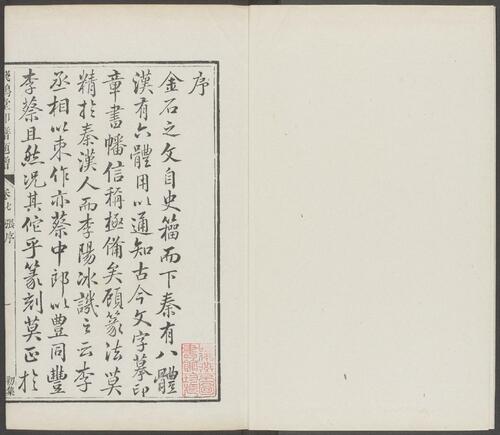 序
金石之文自史籀而下秦有八體
漢有六體用以通知古今文字摹印
章書幡信稱極備矣顧篆法莫
精於秦漢人而李陽冰譏之云李
丞相以束作亦蔡中郎以豊同豐
李蔡且然况其佗乎篆刻莫正於
卷七 張序 一 初集